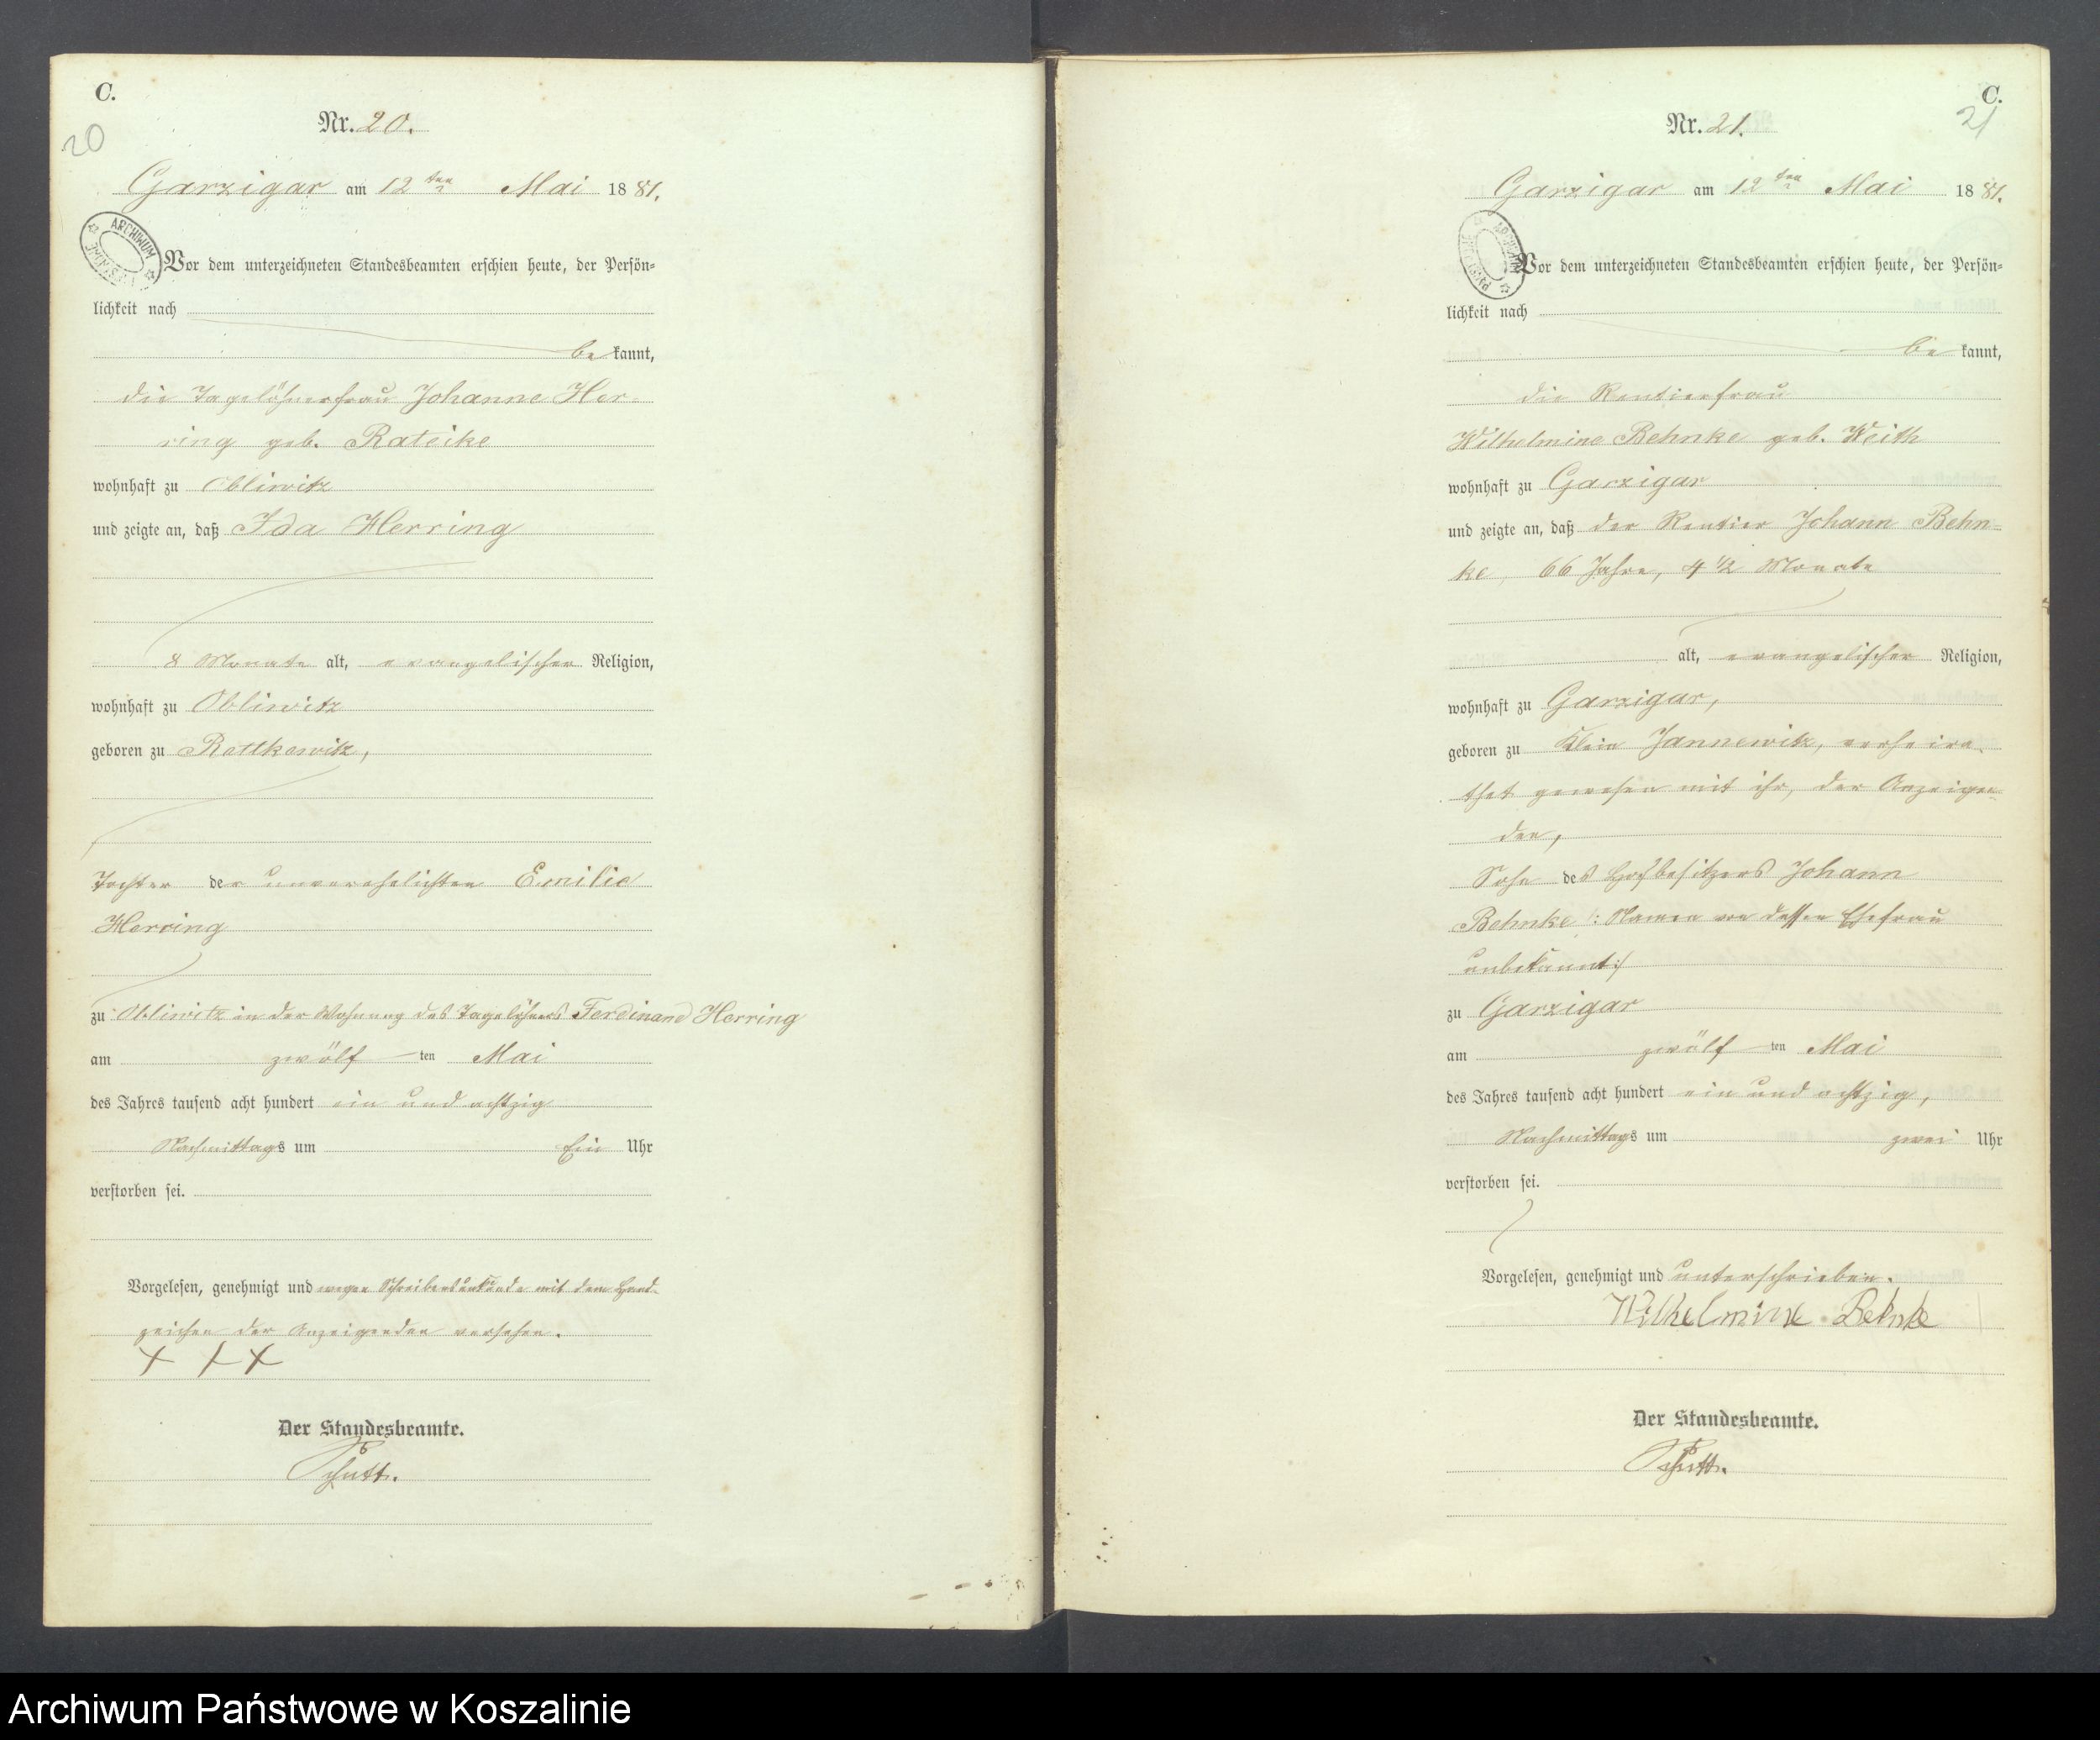 C.
20
Nr. 20.
Garzigar am 12 ten Mai 1881.
ARCHIWUM
Vor dem unterzeichneten Standesbeamten erschien heute, der Persön-
lichkeit nach
be kannt,
die Tagelöhnerfrau Johanne Her-
ring geb. Rateike
wohnhaft zu Obliwitz
und zeigte an, daß Ida Herring
8 Monate alt, evangelischer Religion,
wohnhaft zu Obliwitz
geboren zu Rettkewitz,
Tochter der unverehelichten Emilie
Herring
zu Obliwitz in der Wohnung des Tagelöhners Ferdinand Herring
am zwölf ten Mai
des Jahres tausend acht hundert ein und achtzig
Nachmittags um Ein Uhr
verstorben sei.
Vorgelesen, genehmigt und wegen Schreibensunkunde mit dem Hand-
zeichen der Anzeigenden versehen.
+ + +
Der Standesbeamte.
C.
21
Nr. 21.
Garzigar am 12 ten Mai 1881.
Vor dem unterzeichneten Standesbeamten erschien heute, der Persön-
lichkeit nach
be kannt,
die Rentierfrau
Wilhelmine Behnke geb. Weith
wohnhaft zu Garzigar
und zeigte an, daß der Rentier Johann Behn-
ke, 66 Jahre, 4 1/2 Monate
alt, evangelischer Religion,
wohnhaft zu Garzigar,
geboren zu Klein Jannewitz, verheira-
thet gewesen mit ihr, der Anzeigen-
den,
Sohn des Hofbesitzers Johann
Behnke /: Namen von dessen Ehefrau
unbekannt :/
zu Garzigar
am zwölf ten Mai
des Jahres tausend acht hundert ein und achtzig,
Nachmittags um zwei Uhr
verstorben sei.
Vorgelesen, genehmigt und unterschrieben.
Wilhelmine Behnke
Der Standesbeamte.
Archiwum Państwowe w Koszalinie